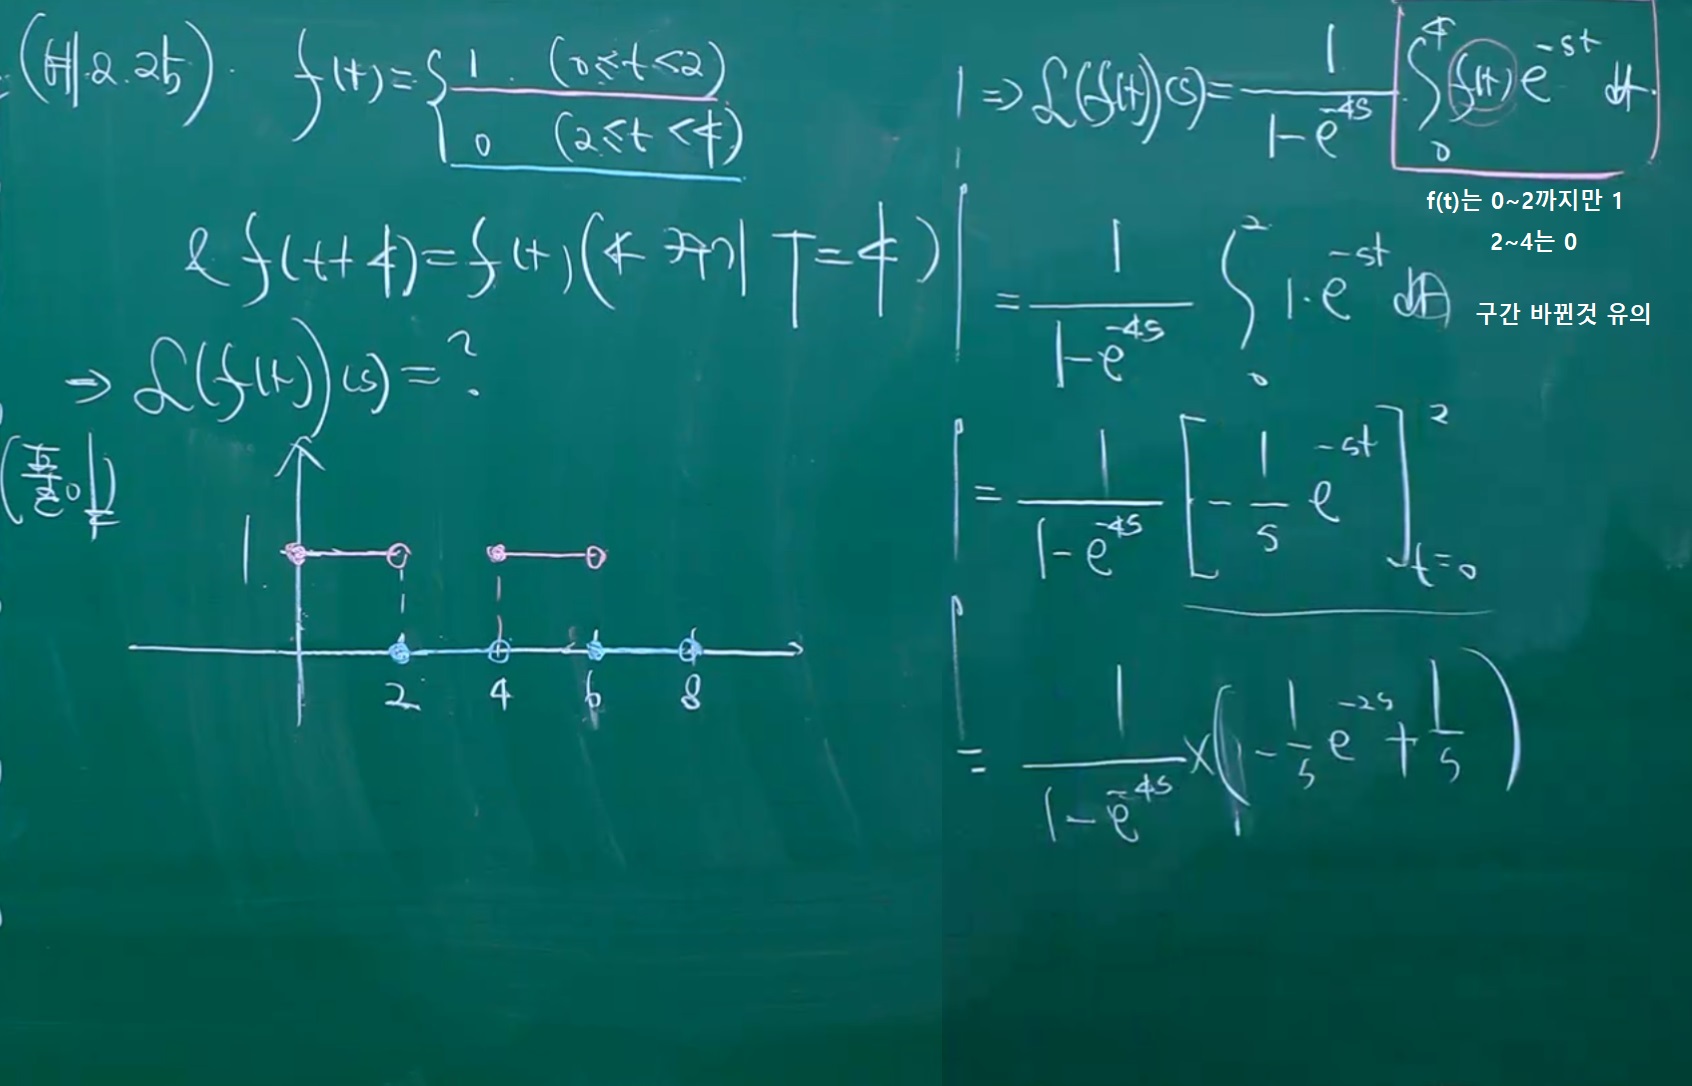 (예 2.25). f(t) = { 1 (0≤t<2)
0 (2≤t<4)
& f(t+4) = f(t) (주기 T=4)
⇒ ℒ(f(t))(s) = ?
(풀이)
1
2 4 6 8
⇒ ℒ(f(t))(s) = 1/(1-e^{-4s}) ∫_0^4 f(t) e^{-st} dt.
f(t)는 0~2까지만 1
2~4는 0
= 1/(1-e^{-4s}) ∫_0^2 1·e^{-st} dt
구간 바뀐것 유의
= 1/(1-e^{-4s}) [-1/s e^{-st}]_{t=0}^2
= 1/(1-e^{-4s}) × (-1/s e^{-2s} + 1/s)